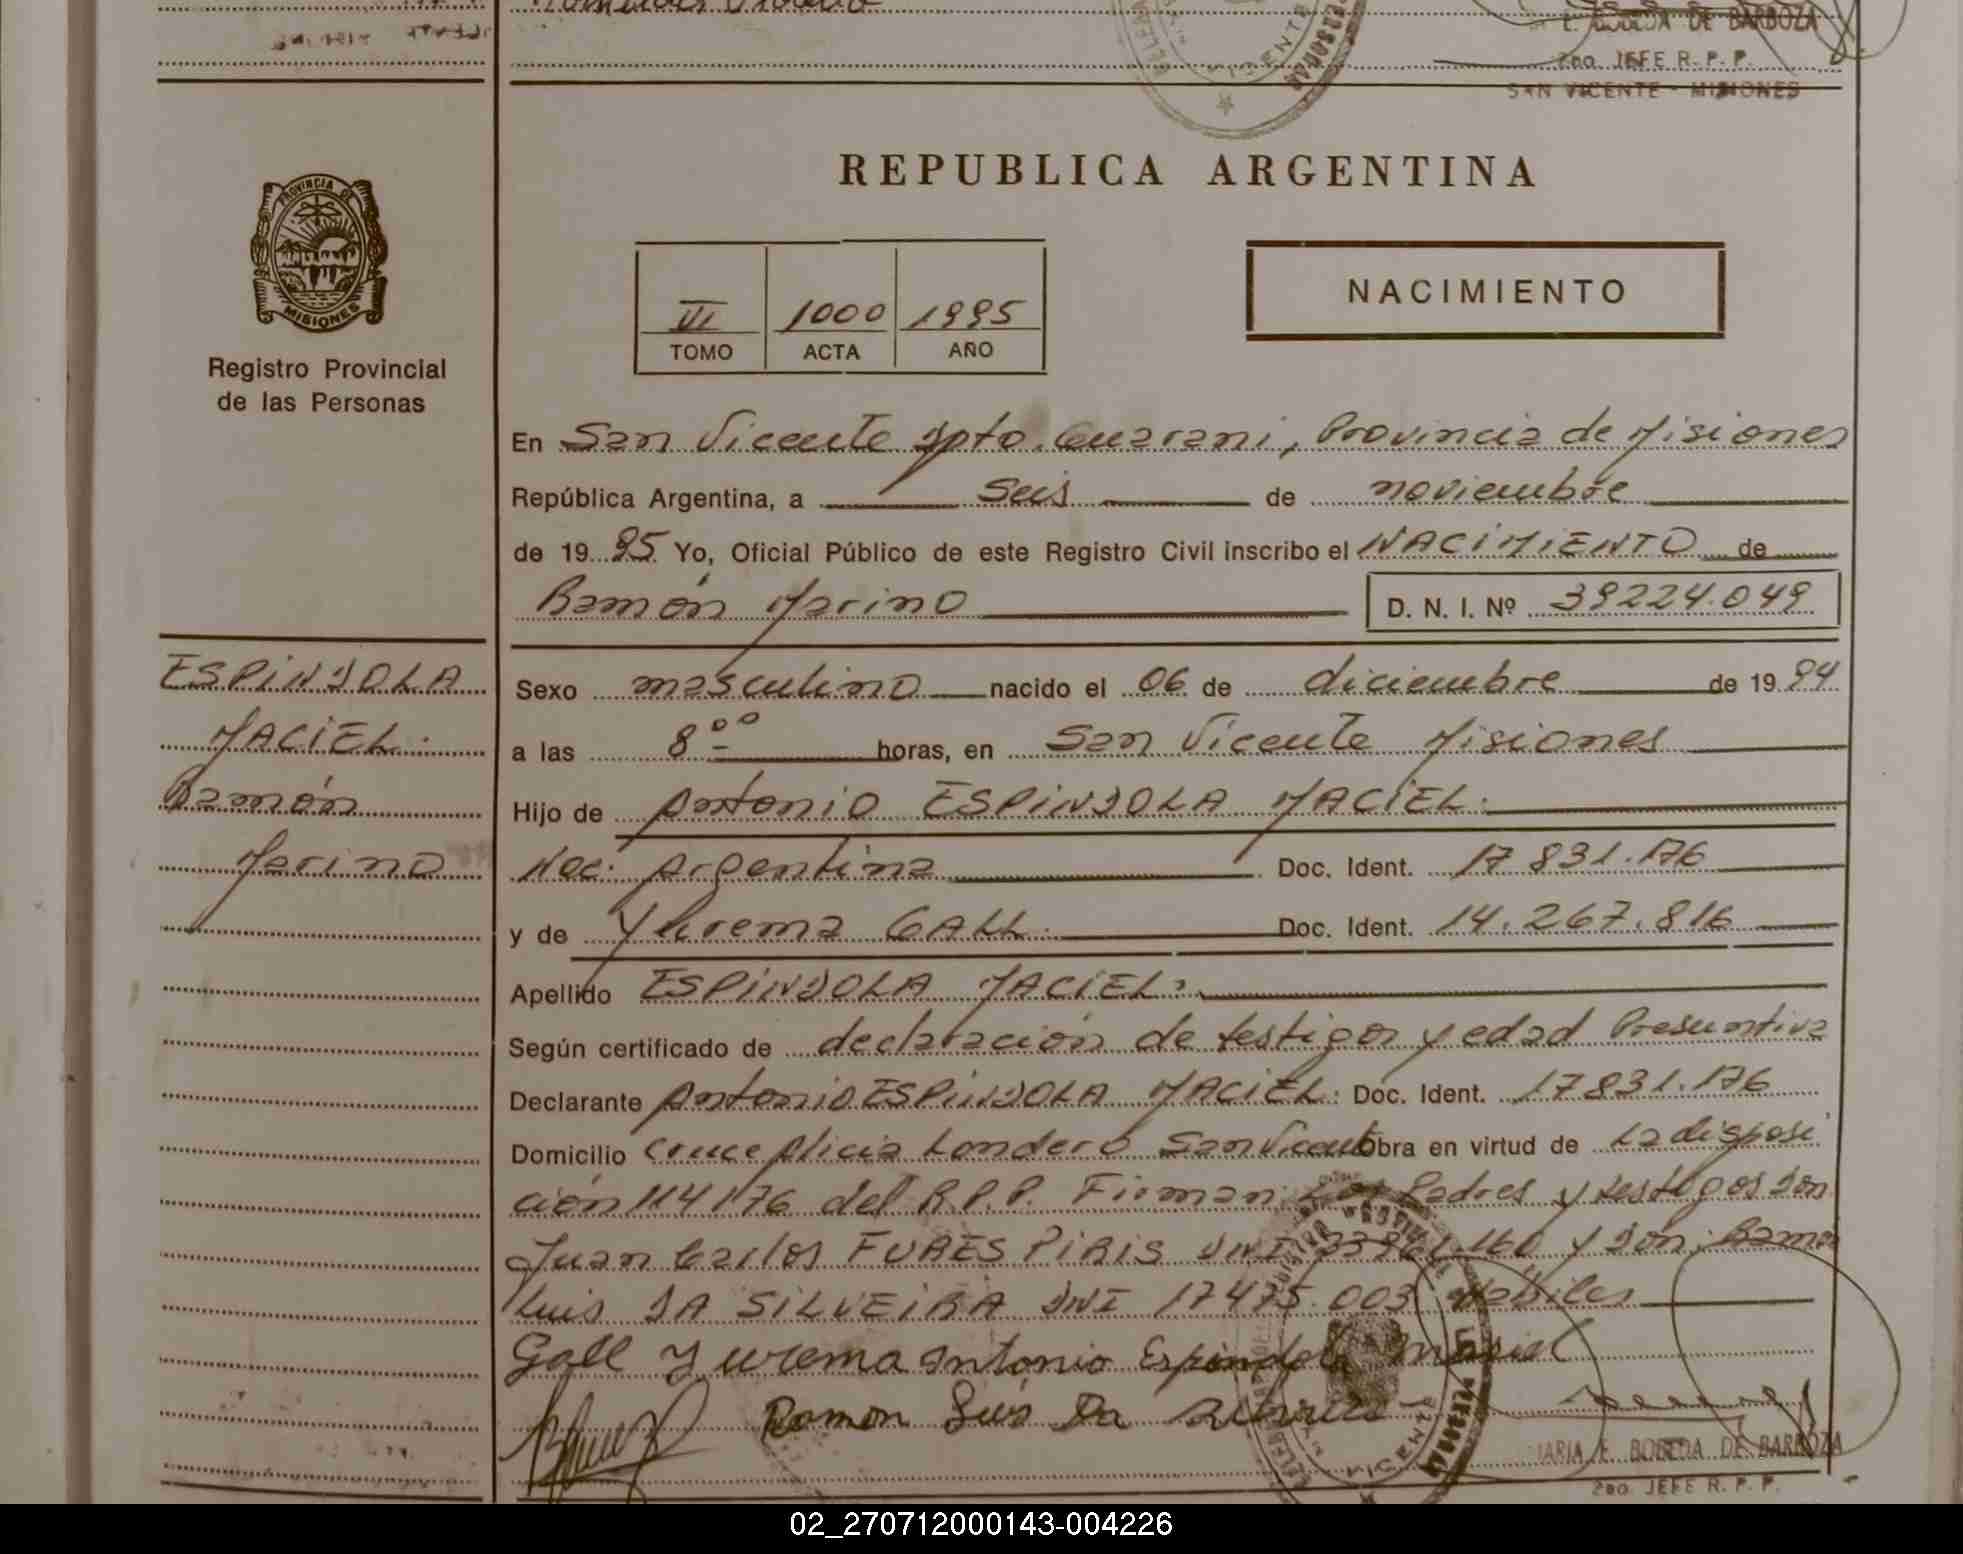 E. BOBEDA DE BARBOZA
2do. JEFE R. P. P.
SAN VICENTE - MISIONES
REPUBLICA ARGENTINA
PROVINCIA DE
MISIONES
Registro Provincial
de las Personas
VI 1000 1995
TOMO ACTA AÑO
NACIMIENTO
En San Vicente Dpto. Guarani, Provincia de Misiones
República Argentina, a Seis de noviembre
de 1995 Yo, Oficial Público de este Registro Civil inscribo el NACIMIENTO de
Ramón Marino D. N. I. Nº 39224.049
ESPINDOLA
MACIEL.
Ramón
Marino
Sexo masculino nacido el 06 de diciembre de 1994
a las 8 00 horas, en San Vicente Misiones
Hijo de Antonio ESPINDOLA MACIEL.
Nac. Argentina Doc. Ident. 17831.176
y de Yurema GALL. Doc. Ident. 14.267.816
Apellido ESPINDOLA MACIEL.
Según certificado de declaración de testigos y edad Presuntiva
Declarante Antonio ESPINDOLA MACIEL. Doc. Ident. 17831.176
Domicilio Cruce Alicia Londero San Vicente Obra en virtud de La disposi
ción 114/76 del R.P.P. Firman Los Padres y testigos Don
Juan Carlos FURES PIRIS DNI y Don. Ramón
Luis DA SILVEIRA DNI 17475.003 Habiles
Gall Yurema Antonio Espindola Masiel
Ramon Luis Da Silveira
MARIA E. BOBEDA DE BARBOZA
2do. JEFE R. P. P.
02_270712000143-004226